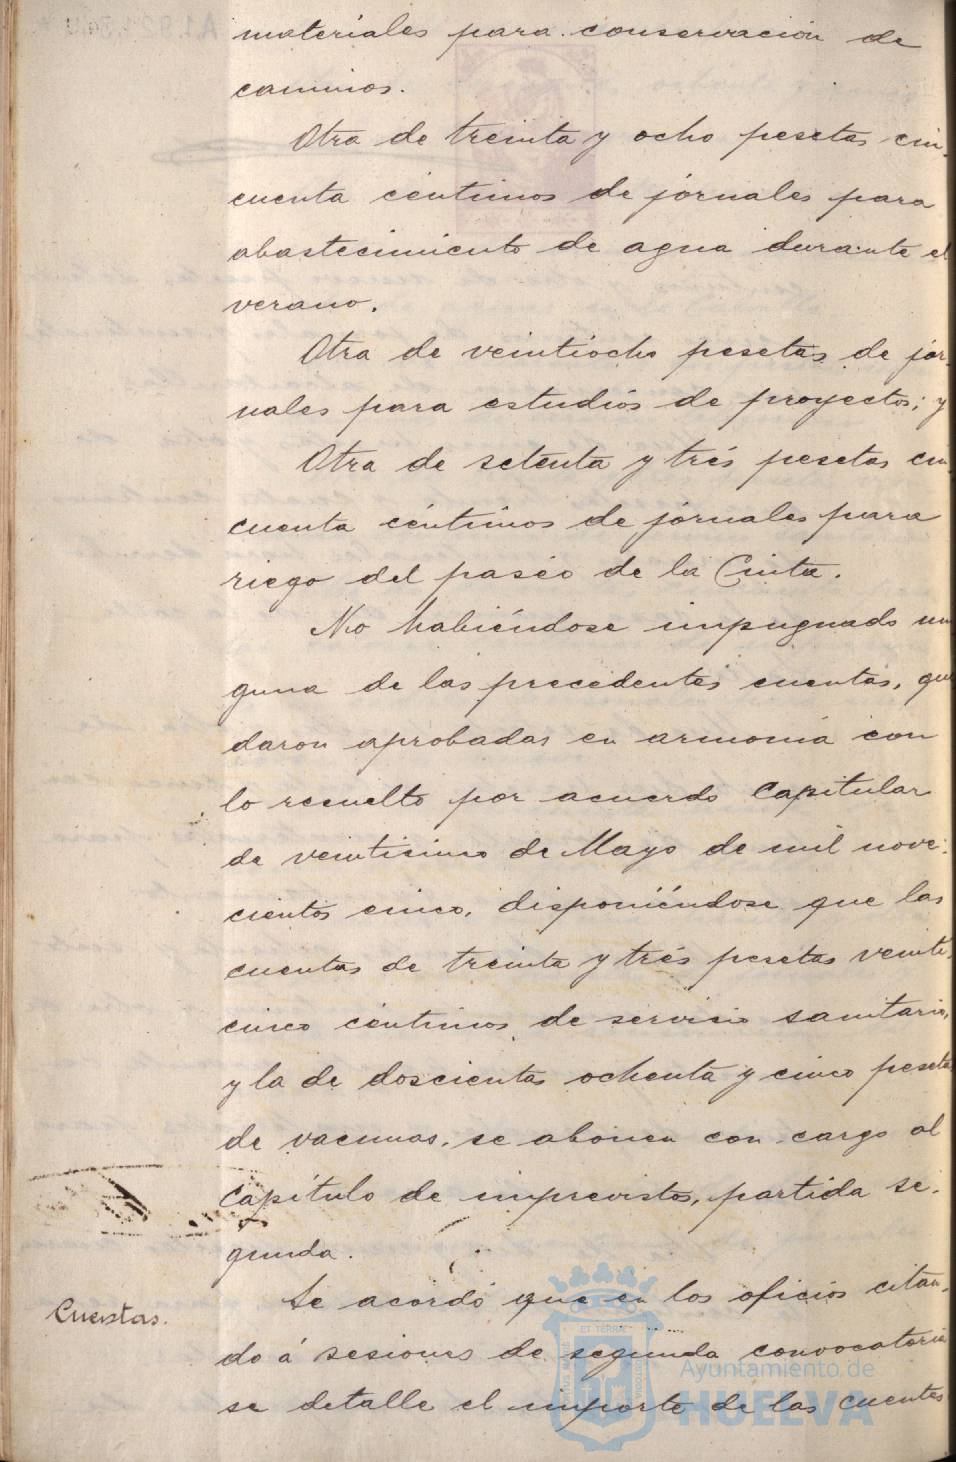 materiales para conservación de
caminos.
Otra de treinta y ocho pesetas cin-
cuenta céntimos de jornales para
abastecimiento de agua durante el
verano.
Otra de veintiocho pesetas de jor-
nales para estudios de proyectos; y
Otra de setenta y trés pesetas cin-
cuenta céntimos de jornales para
riego del paseo de la Cinta.
No habiéndose impugnado nin
guna de las precedentes cuentas, que
daron aprobadas en armonía con
lo resuelto por acuerdo Capitular
de veinticinco de Mayo de mil nove-
cientos cinco, disponiéndose que las
cuentas de treinta y trés pesetas veinti-
cinco céntimos de servicio sanitario,
y la de doscientas ochenta y cinco pesetas
de vacunas, se abonen con cargo al
Capítulo de imprevistos, partida se-
gunda.
Cuentas. Se acordó que en los oficios citan-
do á sesiones de segunda convocatoria
se detalle el importe de las cuentas
Ayuntamiento de
HUELVA